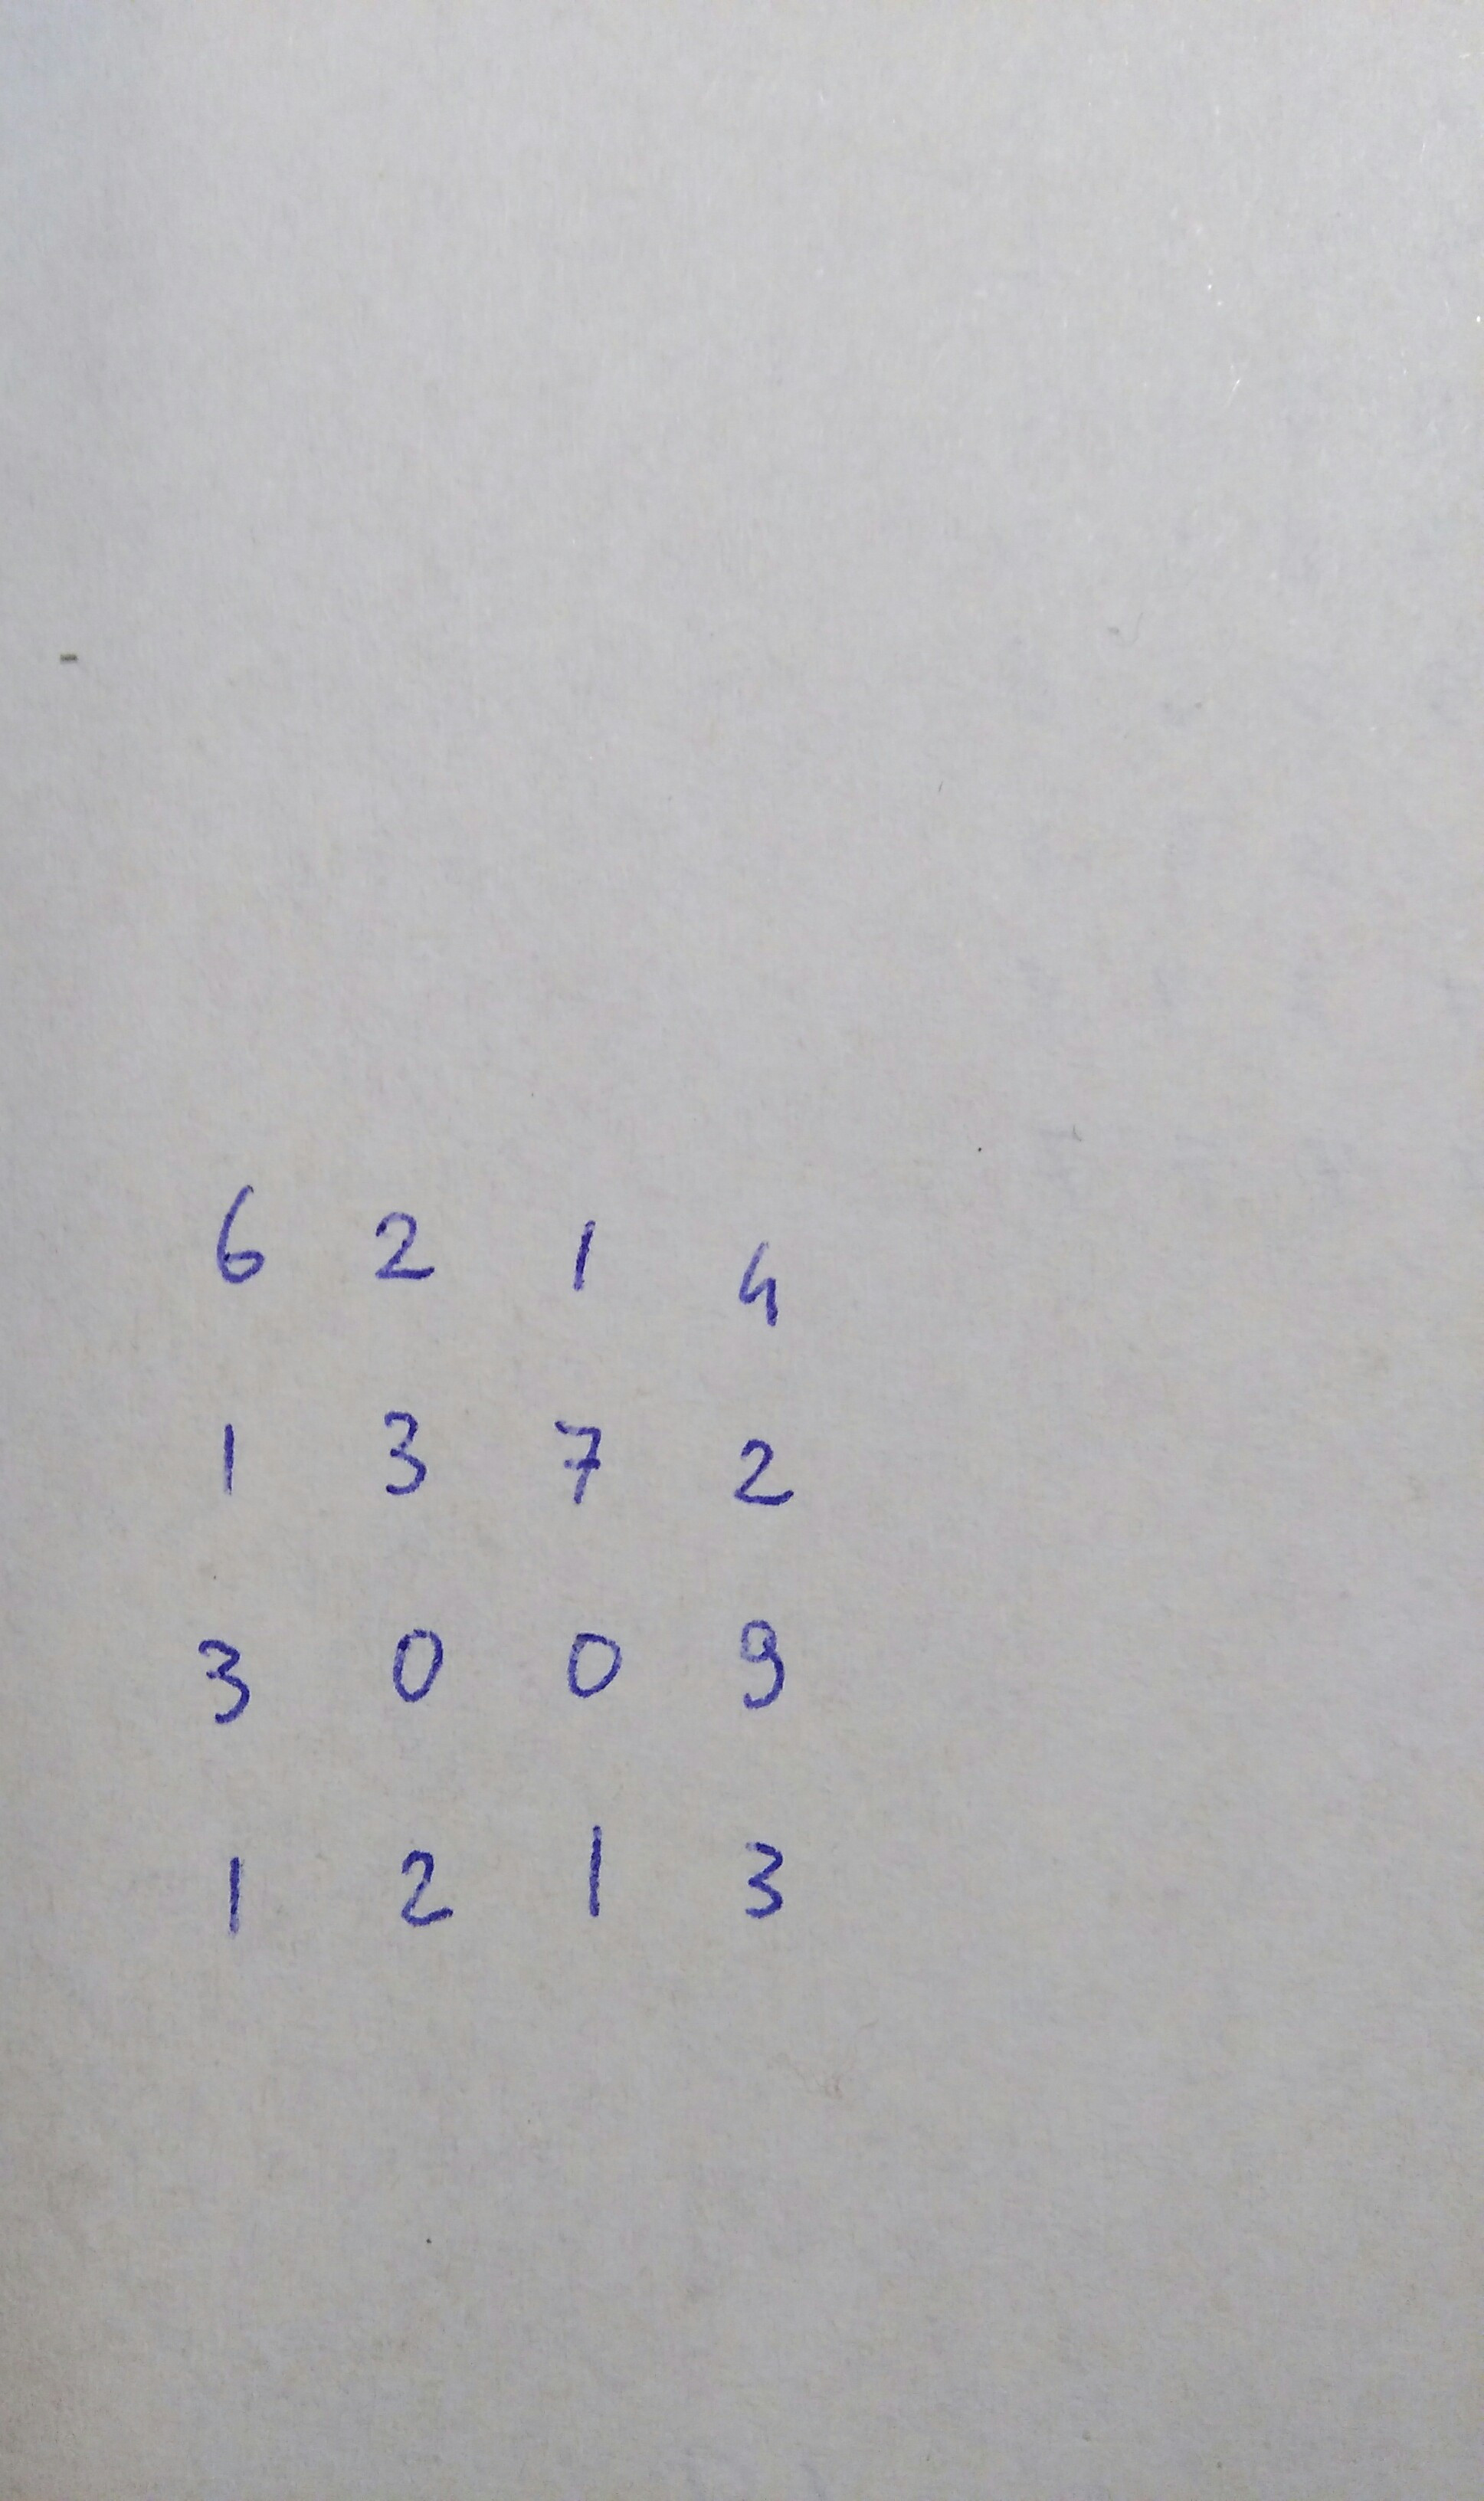 6 2 1 4
1 3 7 2
3 0 0 9
1 2 1 3